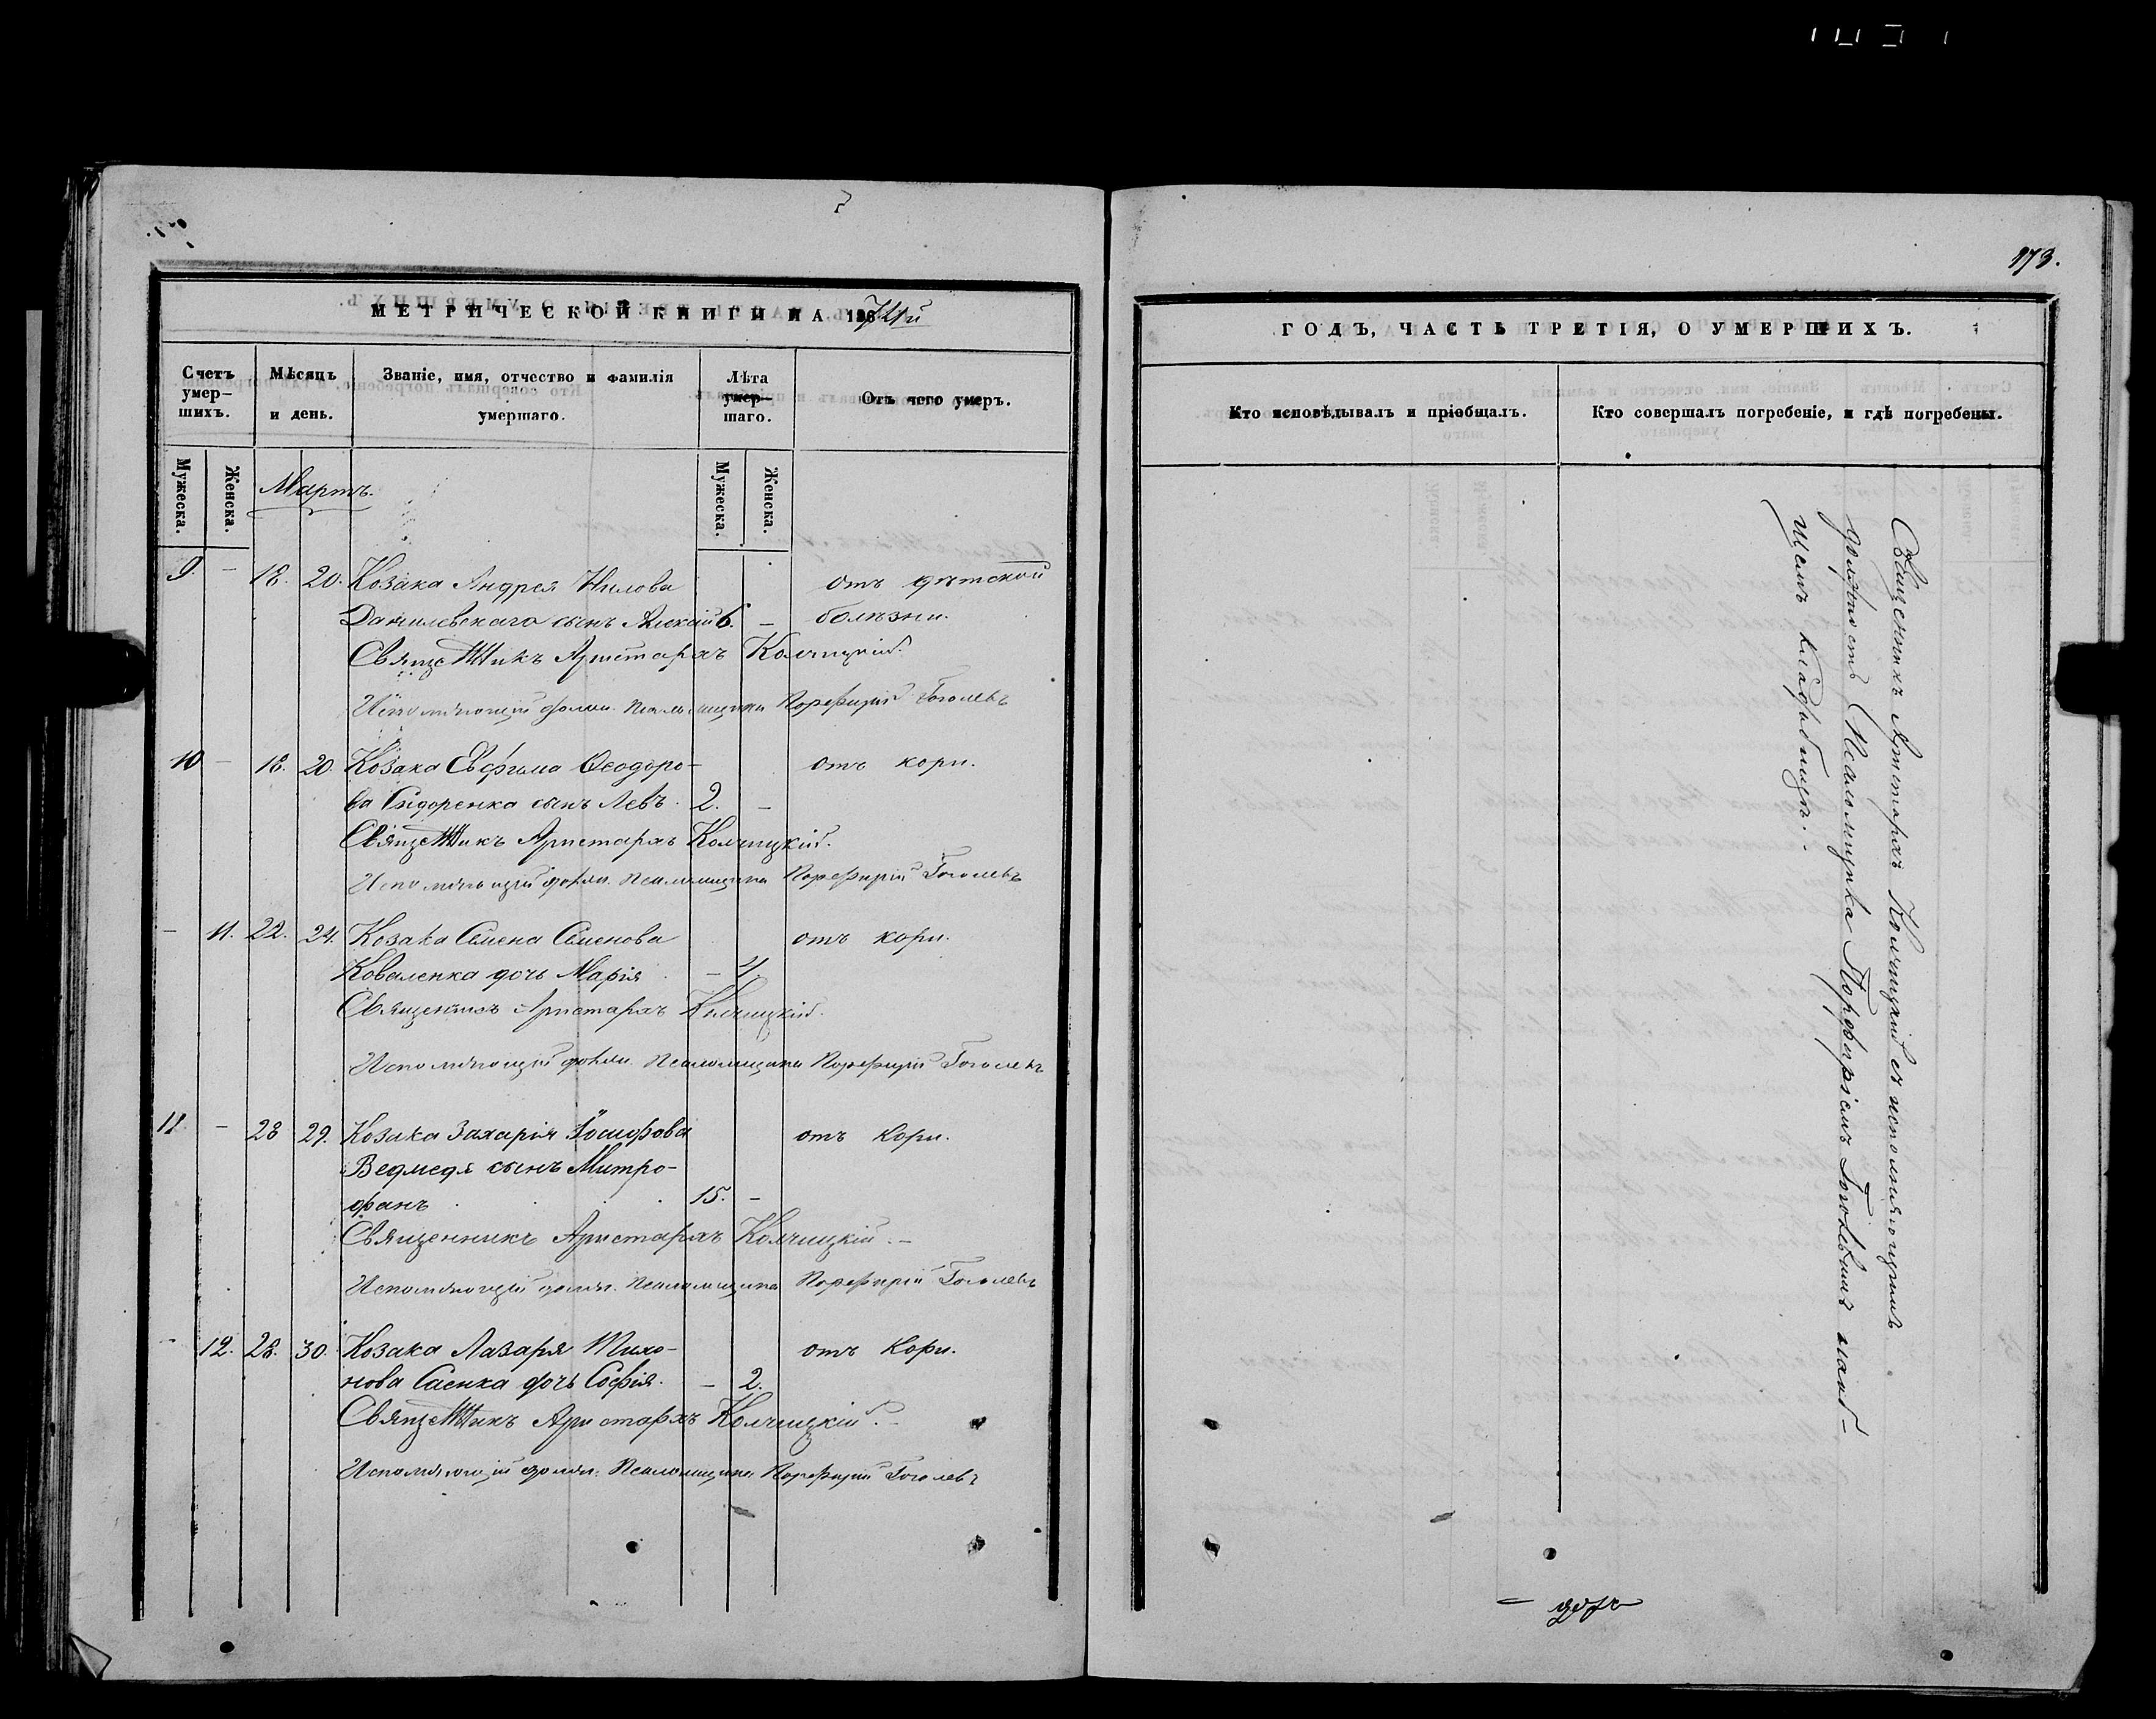 173.
МЕТРИЧЕСКОЙ КНИГИ НА 1872й
Счетъ умер-шихъ.
Мѣсяцъ и день.
Званіе, имя, отчество и фамилія умершаго.
Лѣта умер-шаго.
Отъ чего умеръ.
Мужеска. Женска. Мужеска. Женска.
Мартъ.
9. – 18. 20. Козака Андрея Нилова отъ дѣтской
Данилевскаго сынъ Алексій 6. – болѣзни.
Священникъ Аристархъ Колчицкій.
Исполняющій должн. Псаломщика Порфирій Гоголевъ
10 – 18. 20. Козака Евфима Ѳеодоро- отъ кори.
ва Сидоренка сынъ Левъ. 2. –
Священникъ Аристархъ Колчицкій.
Исполняющій должн. Псаломщика Порфирій Гоголевъ
– 11. 22. 24. Козака Семена Семенова отъ кори.
Коваленка дочь Марія – 4.
Священникъ Аристархъ Колчицкій.
Исполняющій должн. Псаломщика Порфирій Гоголевъ
11. – 28 29. Козака Захарія Іосифова отъ кори.
Ведмедя сынъ Митро-
фанъ 15. –
Священникъ Аристархъ Колчицкій. –
Исполняющій должн. Псаломщика Порфирій Гоголевъ
- 12. 28. 30. Козака Лазаря Тихо- отъ кори.
нова Саенка дочь Софія. – 2.
Священникъ Аристархъ Колчицкій. –
Исполняющій должн. Псаломщика Порфирій Гоголевъ
ГОДЪ, ЧАСТЬ ТРЕТІЯ, О УМЕРШИХЪ.
Кто исповѣдывалъ и пріобщалъ.
Кто совершалъ погребеніе, и гдѣ погребены.
Священникъ Аристархъ Колчицкій съ исполняющимъ
должность Псаломщика Порфиріемъ Гоголевымъ на об-
щемъ кладбищѣ.